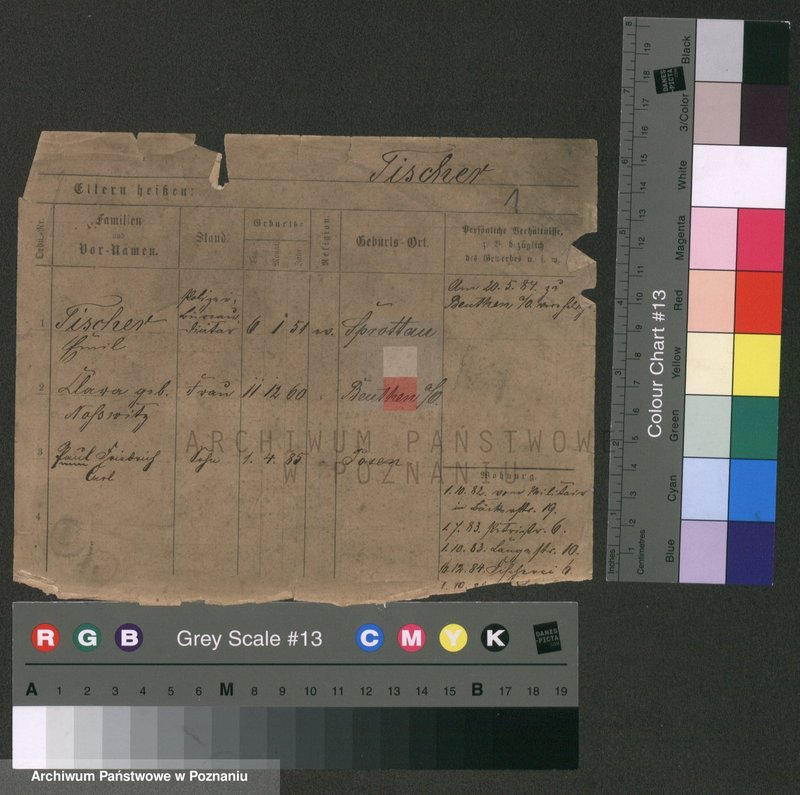 Tischer
1
Eltern heißen:
Lebde.-Nr.
Familien
und
Vor-Namen.
Stand.
Geburts-
Tag
Monat
Jahr
Religion.
Geburts-Ort.
Persönliche Verhältnisse,
z. B. bezüglich
des Gewerbes u. s. w.
Am 20.5.84 zu
Beuthen a/O.
1 Tischer Polizei- Bureau Diätar 6 1 51 Sprottau
Emil
2 Clara geb. Frau 11 12 60 Beuthen a/O.
Noßwitz
3 Paul Friedrich Sohn 1. 4. 85 Posen
Carl
4
Wohnung.
1.10.82. vom Militair
in Bäckerstr. 19.
1.7.83. Petristr. 6.
1.10.83. Langestr. 10.
6.12.84. Fischerei 6.
1.10.
ARCHIWUM PAŃSTWOWE
W POZNANIU
8 7 6 5 4 3 2 1 Inches
19 18 17 16 15 14 13 12 11 10 9 8 7 6 5 4 3 2 1 Centimetres
Colour Chart #13
Black
3/Color
White
Magenta
Red
Yellow
Green
Cyan
Blue
DANES
-PICTA
.COM
R G B Grey Scale #13 C M Y K
DANES
-PICTA
.COM
A 1 2 3 4 5 6 M 8 9 10 11 12 13 14 15 B 17 18 19
Archiwum Państwowe w Poznaniu